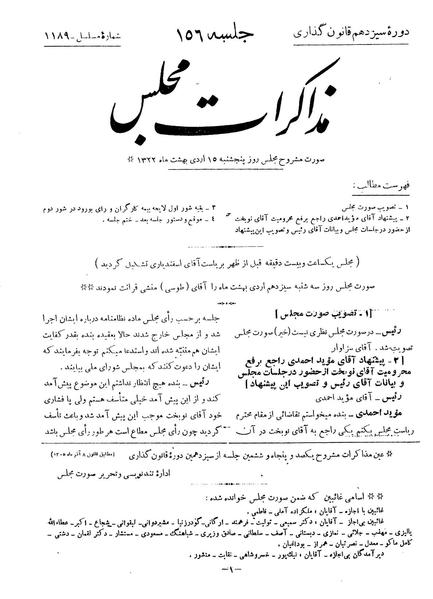 دورهٔ سیزدهم قانون گذاری
جلسه ۱۵۶
شمارهٔ مسلسل - ۱۱۸۹
مذاکرات مجلس
صورت مشروح مجلس روز پنجشنبه ۱۵ اردی بهشت ماه ۱۳۲۲ ※
فهرست مطالب:
۱ - تصویب صورت مجلس
۲ - پیشنهاد آقای مؤیداحمدی راجع برفع محرومیت آقای نوبخت
از حضور در جلسات مجلس و بیانات آقای رئیس و تصویب این پیشنهاد
۳ - بقیه شور اول لایحه بیمه کارگران و رای بورود در شور دوم
۴ - موقع و دستور جلسه بعد - ختم جلسه.
( مجلس یکساعت و بیست دقیقه قبل از ظهر بریاست آقای اسفندیاری تشکیل گردید )
صورت مجلس روز سه شنبه سیزدهم اردی بهشت ماه را آقای (طوسی) منشی قرائت نمودند ※※
[۱ - تصویب صورت مجلس]
رئیس - در صورت مجلس نظری نیست (خیر) صورت مجلس
تصویب شد. آقای سزاوار
[۲ - پیشنهاد آقای مؤید احمدی راجع برفع
محرومیت آقای نوبخت از حضور در جلسات مجلس
و بیانات آقای رئیس و تصویب این پیشنهاد]
رئیس - آقای مؤید احمدی
مؤید احمدی - بنده میخواستم تقاضائی از مقام محترم
ریاست مجلس بکنم یکی راجع به آقای نوبخت در آن
جلسه بر حسب رأی مجلس ماده نظامنامه درباره ایشان اجرا
شد و از مجلس خارج شدند حالا بعقیده بنده بقدر کفایت
ایشان هم متنبه شده اند و استدعا میکنم توجه بفرمایند که
ایشان را دعوت کنند که بمجلس شورای ملی بیایند.
رئیس - بنده هیچ انتظار نداشتم این موضوع پیش آمد
کند و از این پیش آمد خیلی متأسف هستم ولی پا فشاری
خود آقای نوبخت موجب این پیش آمد شد و باعث تأسف
گردید چون رأی مجلس مطاع است هر طور رأی مجلس باشد
※ عین مذاکرات مشروح یکصد و پنجاه و ششمین جلسه از سیزدهمین دورهٔ قانون گذاری
(مطابق قانون ۸ آذر ماه ۱۳۰۵)
ادارهٔ تندنویسی و تحریر صورت مجلس
※ ※ اسامی غائبین که ضمن صورت مجلس خوانده شده:
غائبین با اجازه - آقایان: ملک زاده آملی - فاطمی.
غائبین بی اجازه - آقایان: دکتر سمیعی - تولیت - فرهمند - اورنگ - گودرزنیا - مشیردوانی - ایقوانی - شجاع - اکبر - عطاءالله
پالیزی - مهذب - جلائی - نمازی - دبستانی - آصف - سلطانی - صادق وزیری - شباهنگ - مسعودی - مستشار - دکتر لقمان - دشتی -
کامل ماکو - معدل - نصرتیان - همراز - بوداغیان.
دیرآمدگان بی اجازه - آقایان: نیک پور - خسروشاهی - نقابت - منشور.
-۱-